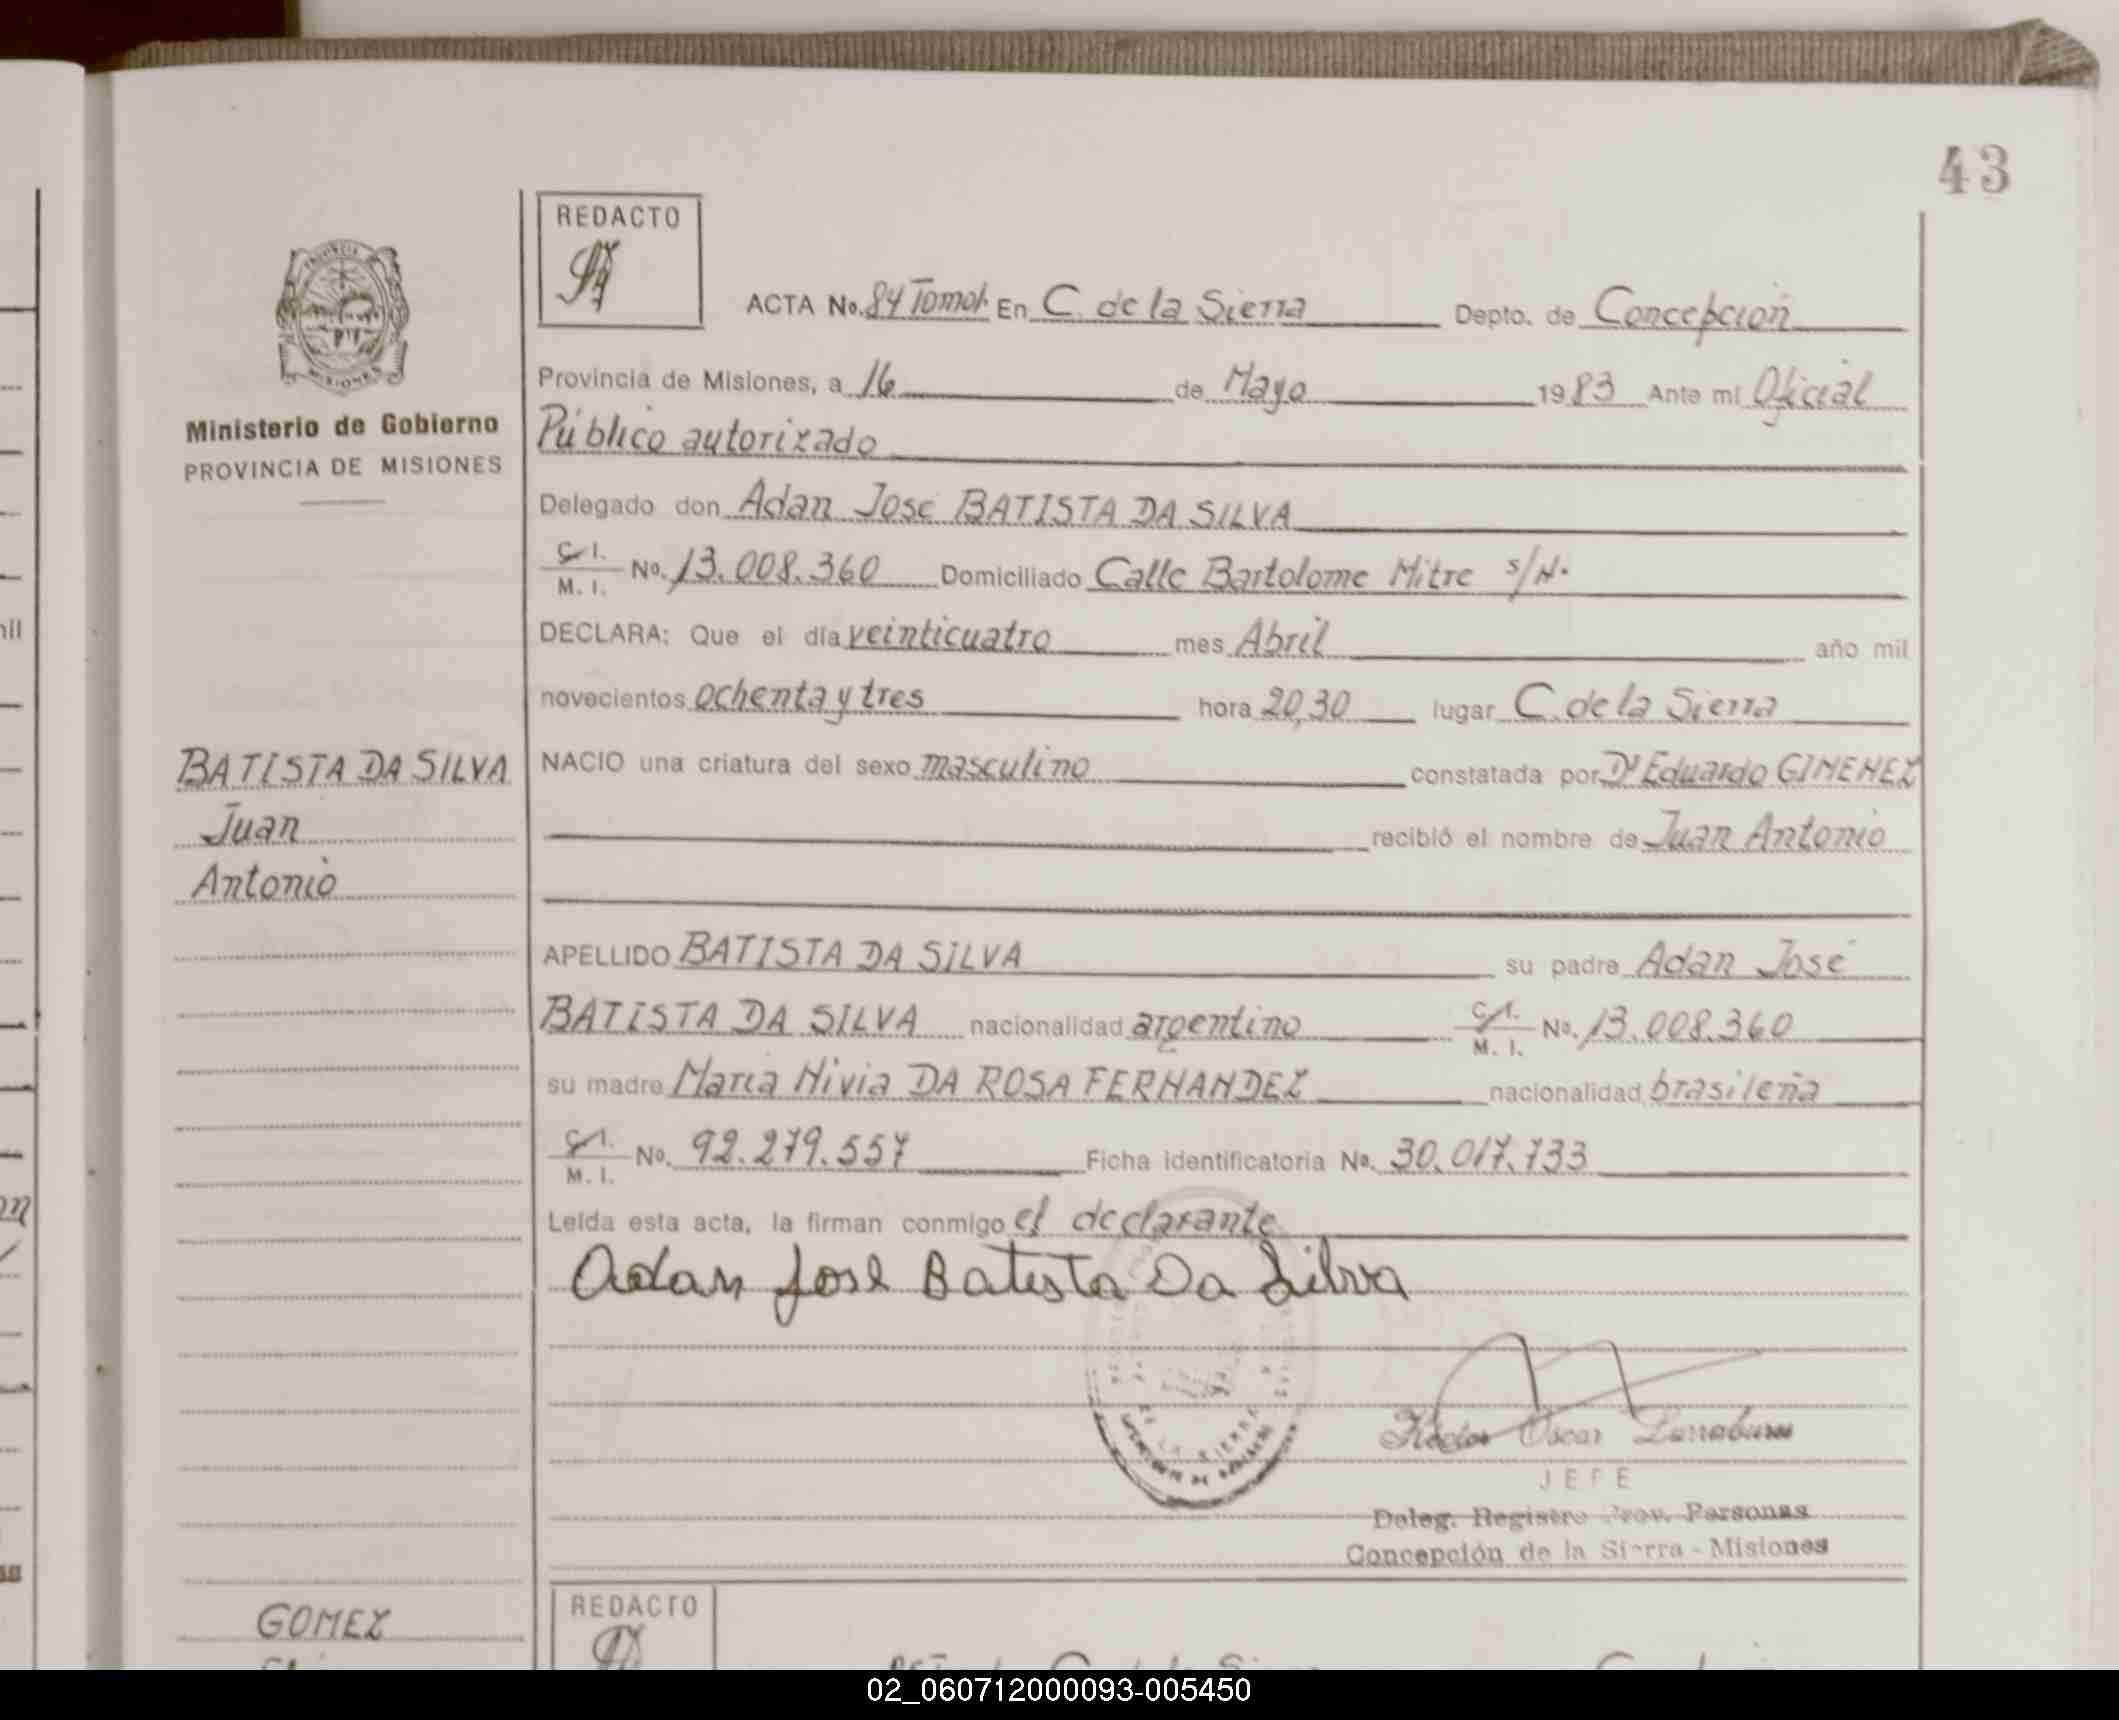 43
REDACTO
ACTA No. 84 Tomo I. En C. de la Sierra Depto. de Concepción
Provincia de Misiones, a 16 de Mayo 1983 Ante mi Oficial
Ministerio de Gobierno
PROVINCIA DE MISIONES
Público autorizado
Delegado don Adan José BATISTA DA SILVA
C. I.
M. I. No. 13.008.360 Domiciliado Calle Bartolome Mitre s/N.
DECLARA: Que el día veinticuatro mes Abril año mil
novecientos ochenta y tres hora 20,30 lugar C. de la Sierra
BATISTA DA SILVA
Juan
Antonio
NACIO una criatura del sexo masculino constatada por Dr Eduardo GIMENEZ
recibió el nombre de Juan Antonio
APELLIDO BATISTA DA SILVA su padre Adan José
BATISTA DA SILVA nacionalidad argentino C. I. M. I. No. 13.008.360
su madre María Nivia DA ROSA FERNANDEZ nacionalidad brasileña
C. I.
M. I. No. 92.279.557 Ficha identificatoria No. 30.017.733
Leída esta acta, la firman conmigo el declarante
Adan José Batista Da Silva
DE LA SIERRA
Héctor Oscar Larraburu
JEFE
Deleg. Registro Prov. Personas
Concepción de la Sierra - Misiones
GOMEZ
REDACTO
02_060712000093-005450